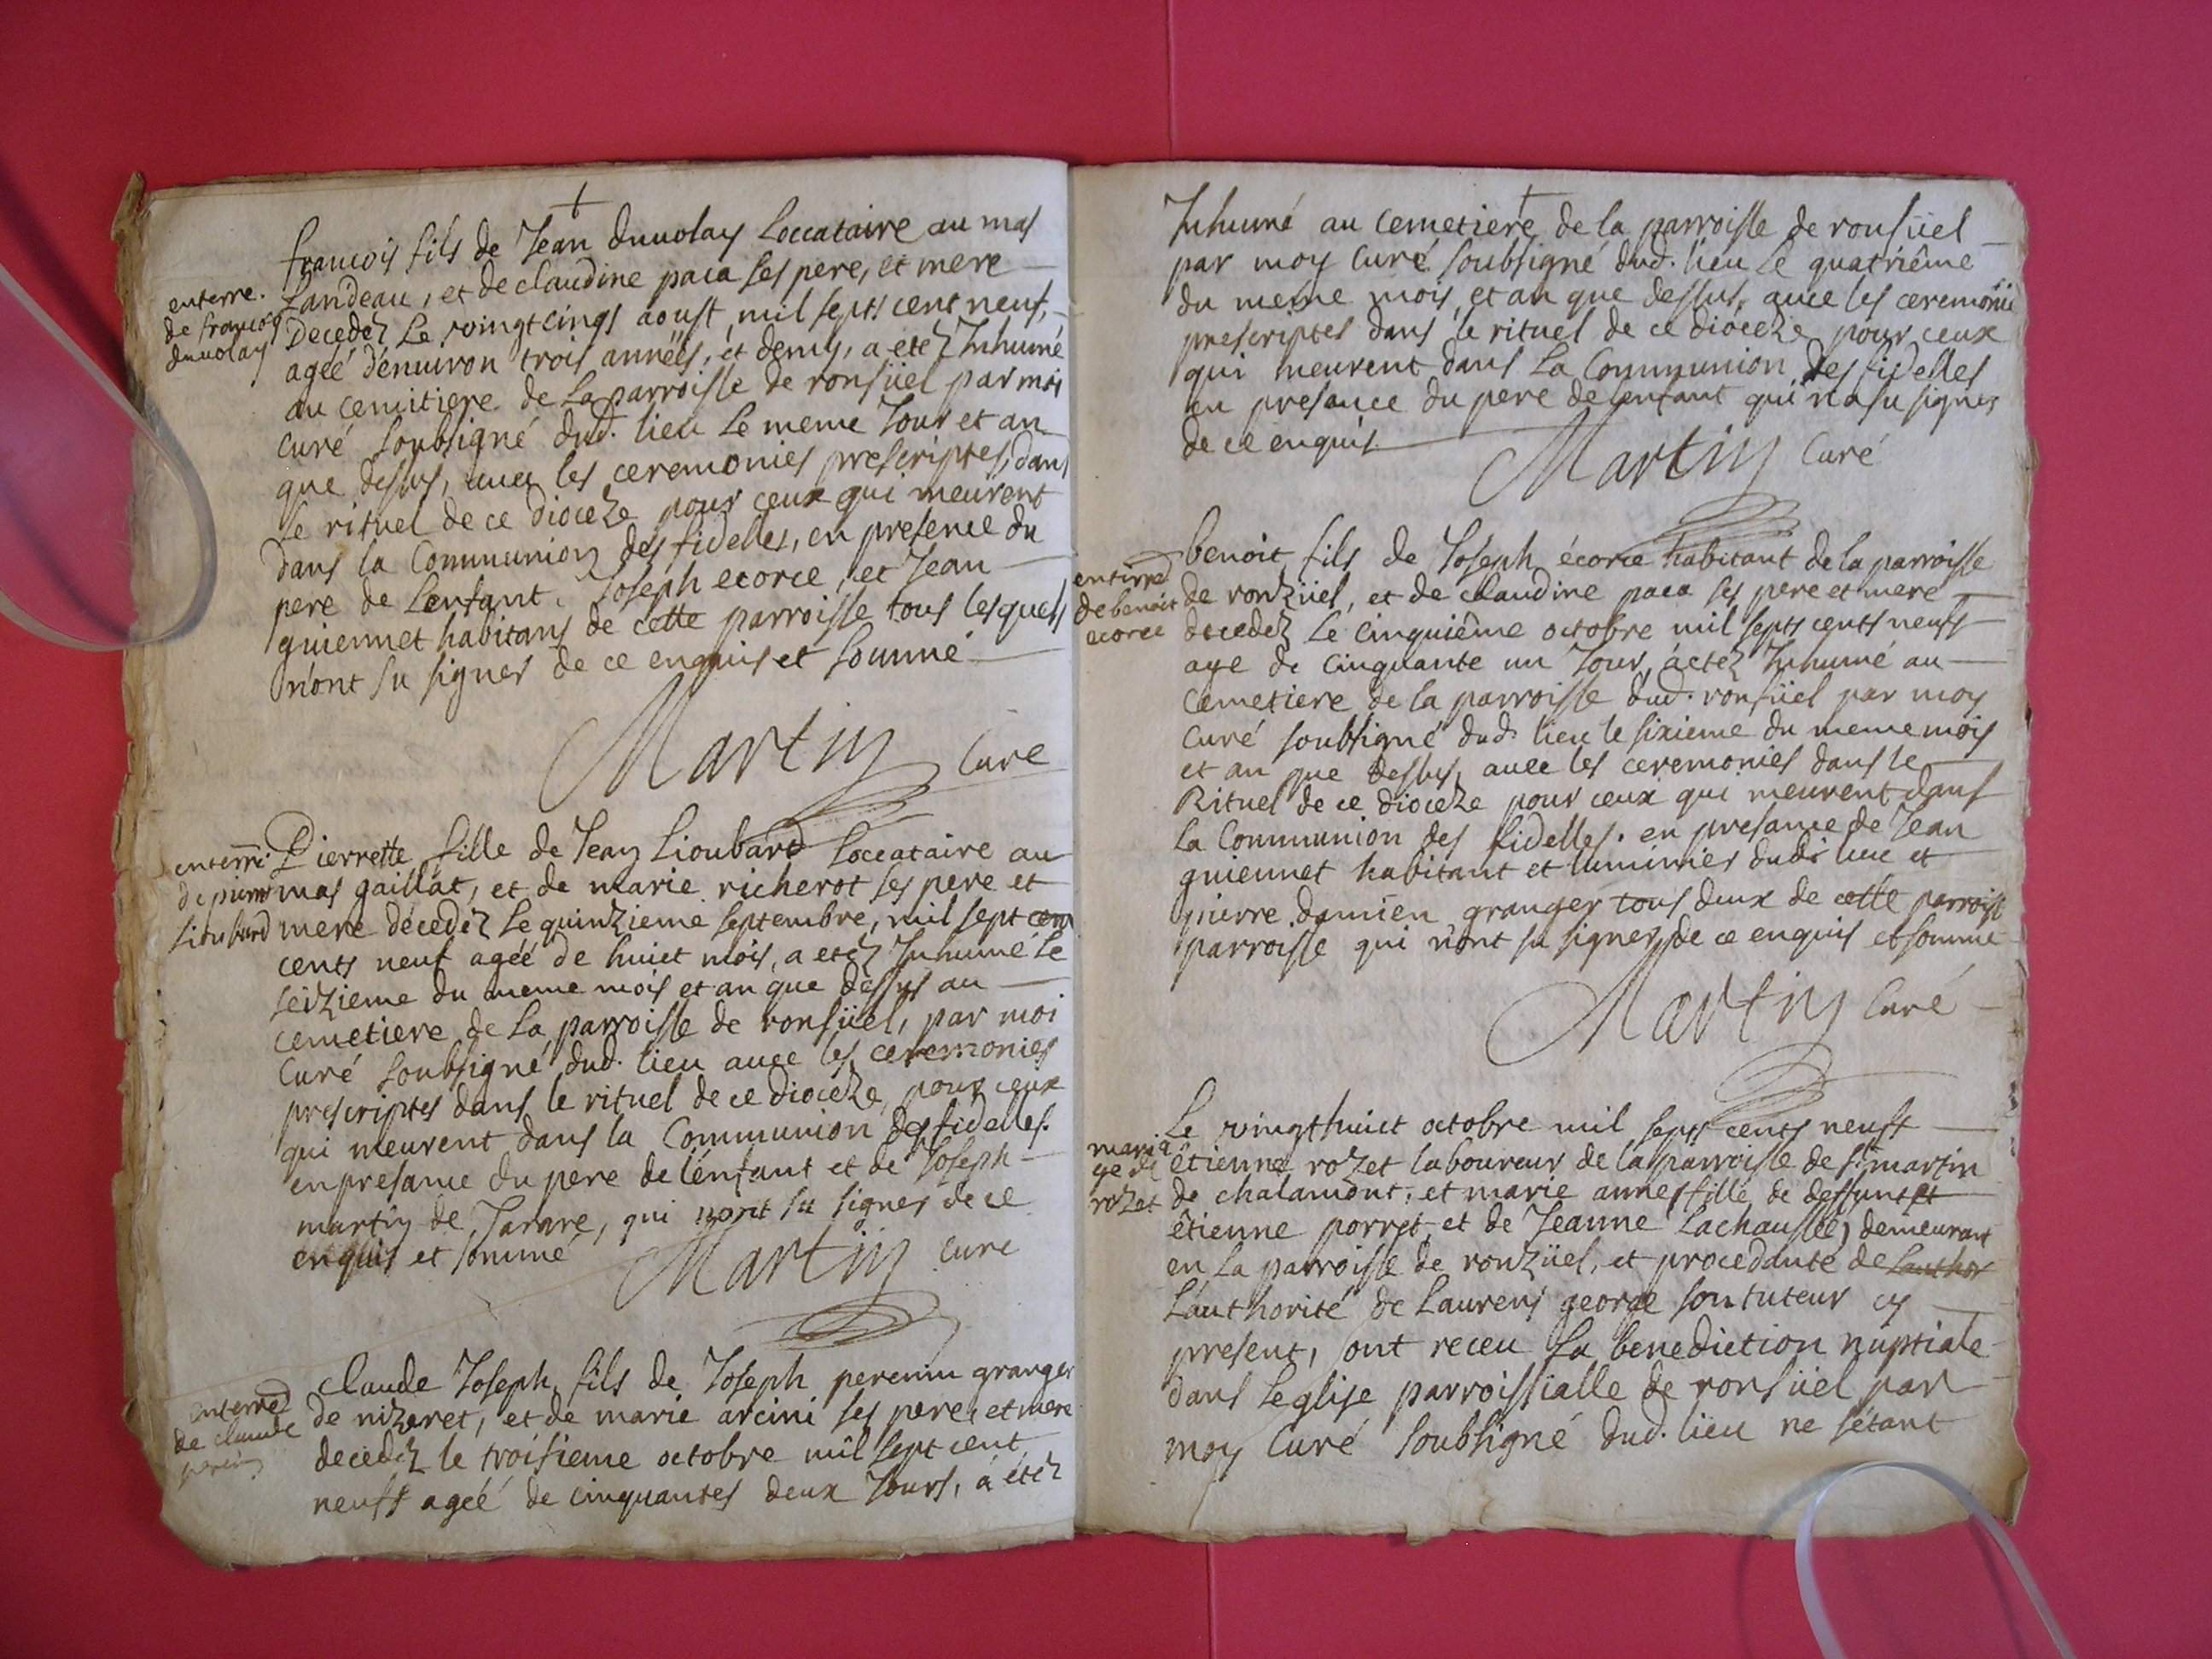 enterre.
de francois
duuolay
francois fils de Jean duuolay Loccataire au mas
Landeau, et de claudine paca ses pere, et mere
Decedez Le vingt cinqs aoust, mil septs cent neuf,
ageé d'enuiron trois années, et demy, a etez Inhumé
au cemitiere de La parroisse de ronsüel par moi
curé soubsigné dud. lieu Le meme Jour et an
que dessus, auec les ceremonies prescriptes, dans
le rituel de ce diocèze pour ceux qui meurent
dans la Communion des fidelles, en presence du
pere de Lenfant, Joseph ecorce, et Jean
guiennet habitans de cette parroisse tous lesquels
n'ont su signer de ce enquis et sommé
Martin Curé
enterré
de pierrette
Lioubard
Pierrette fille de Jean Lioubard Loccataire au
mas gaillat, et de marie richerot ses pere et
mere décedéz Le quinzieme septembre, mil sept cens
cents neuf ageé de huict mois, a etéz Inhumé Le
seizieme du meme mois et an que dessus au
cemetiere de La parroisse de ronsüel, par moi
Curé soubsigné dud. lieu auec les ceremonies
prescriptes dans le rituel de ce diocèze, pour ceux
qui meurent dans la Communion des fidelles.
en presance du pere de l'enfant et de Joseph
martin de Jarare, qui n'ont su signer de ce
enquis et sommé
Martin curé
enterré
de claude
perin
claude Joseph fils de Joseph perenin granger
de nizeret, et de marie arcini ses pere, et mere
decedéz le troisieme octobre mil sept cent
neufs ageé de cinquantes deux Jours, á étéz
Inhumé au cemetiere de la parroisse de ronsüel
par moy Curé soubsigné dud. lieu Le quatriême
du meme mois, et an que dessus, auec les ceremonie
prescriptes dans le rituel de ce diócèze pour ceux
qui meurent dans La Communion des fidelles
en presance du pere de lenfant qui n'a su signer
de ce enquis
Martin Curé
enterré
de benoit
ecorce
benoit fils de Joseph écorce habitant de la parroisse
de ronzüel, et de claudine paca ses pere et mere
decedéz Le cinquiême octobre mil septs cents neufs
age de cinquante un Jour, á etéz Inhumé au
cemetiere de la parroisse dud. ronsüel par moy
Curé soubsigné dud. lieu le sixieme du meme mois
et an que dessus, auec les ceremonies dans le
Rituel de ce diocèze pour ceux qui meurent dans
La Communion des fidelles. en presance de Jean
guiennet habitant et luminier dudi. lieu et
pierre damien granger tous deux de cette parroise
parroisse qui n'ont su signer de ce enquis et sommé
Martin Curé
maria
ge de
rozet
Le vingthuict octobre mil septs cents neufs
êtienne rozet laboureur de la parroisse de st. martin
de chalamont, et marie anne fille de deffunt et
êtienne porret, et de Jeanne Lachaussée, demeurant
en La parroisse de ronzüel, et procedante de Lauthor
Lauthorité de Laurens george son tuteur cy
present, ont receu La benediction nuptiale
dans Leglise parroissialle de ronsüel par
moy Curé soubsigné dud. lieu ne sétant